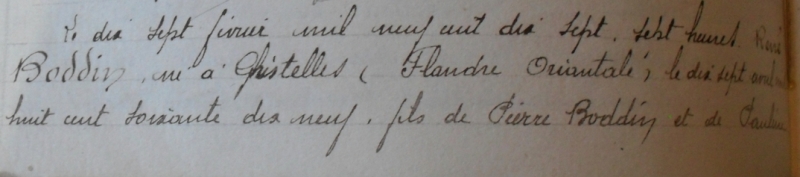 Le dix sept février mil neuf cent dix sept, sept heures René
Boddin, né à Ghistelles (Flandre Orientale) le dix sept avril mil
huit cent soixante dix neuf, fils de Pierre Boddin et de Pauline